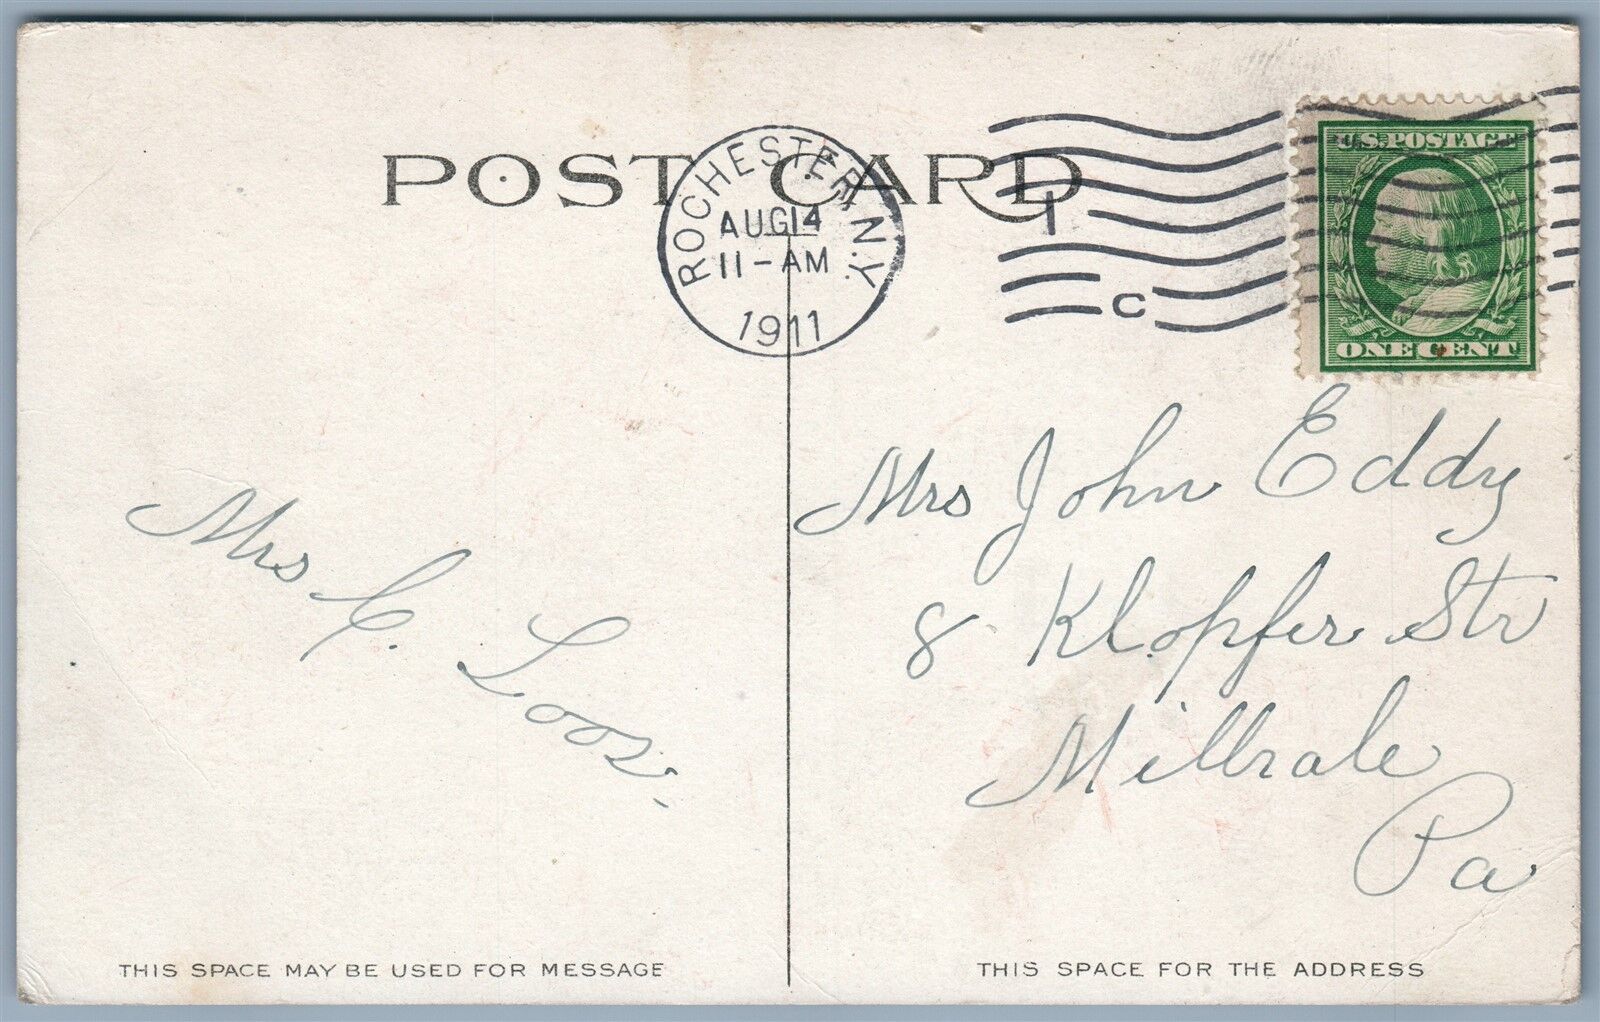 POST CARD
ROCHESTER, N.Y.
AUG 14
11-AM
1911
1
C
U.S. POSTAGE
ONE CENT
Mrs C. Loos.
Mrs John Eddy
8 Klopfer Str
Millvale
Pa
THIS SPACE MAY BE USED FOR MESSAGE
THIS SPACE FOR THE ADDRESS